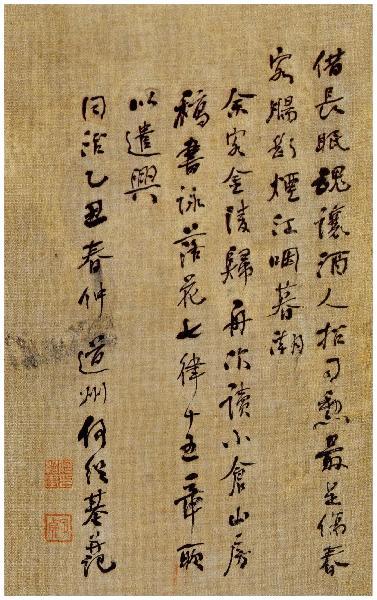 借長眠魂讓酒人招司勳最是傷春
客腸斷煙江咽暮潮
余客金陵歸舟次讀小倉山房
稿書詠落花七律十五章聊
以遣興
同治乙丑春仲道州何紹基